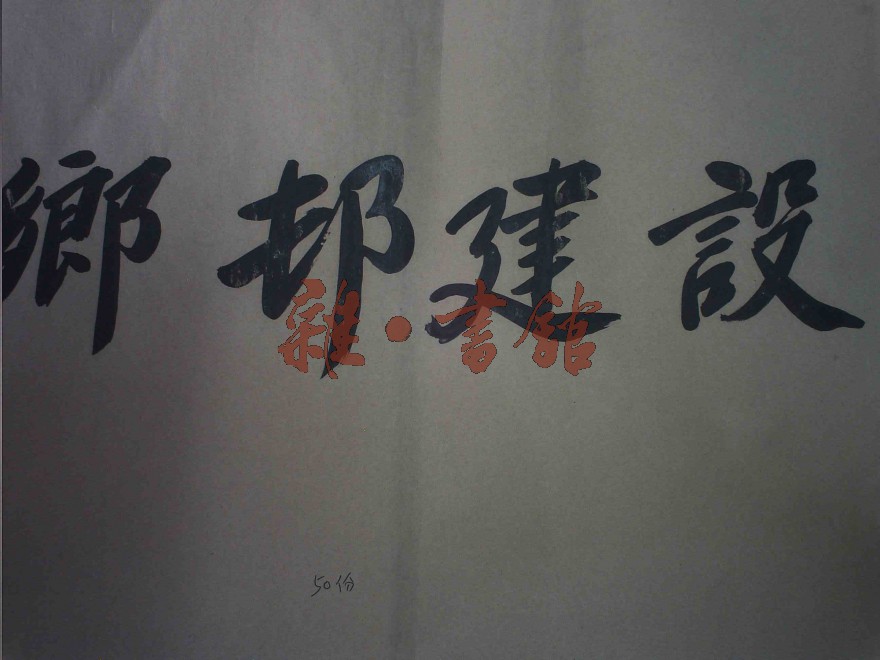 鄉邨建設
雜·書館
50份